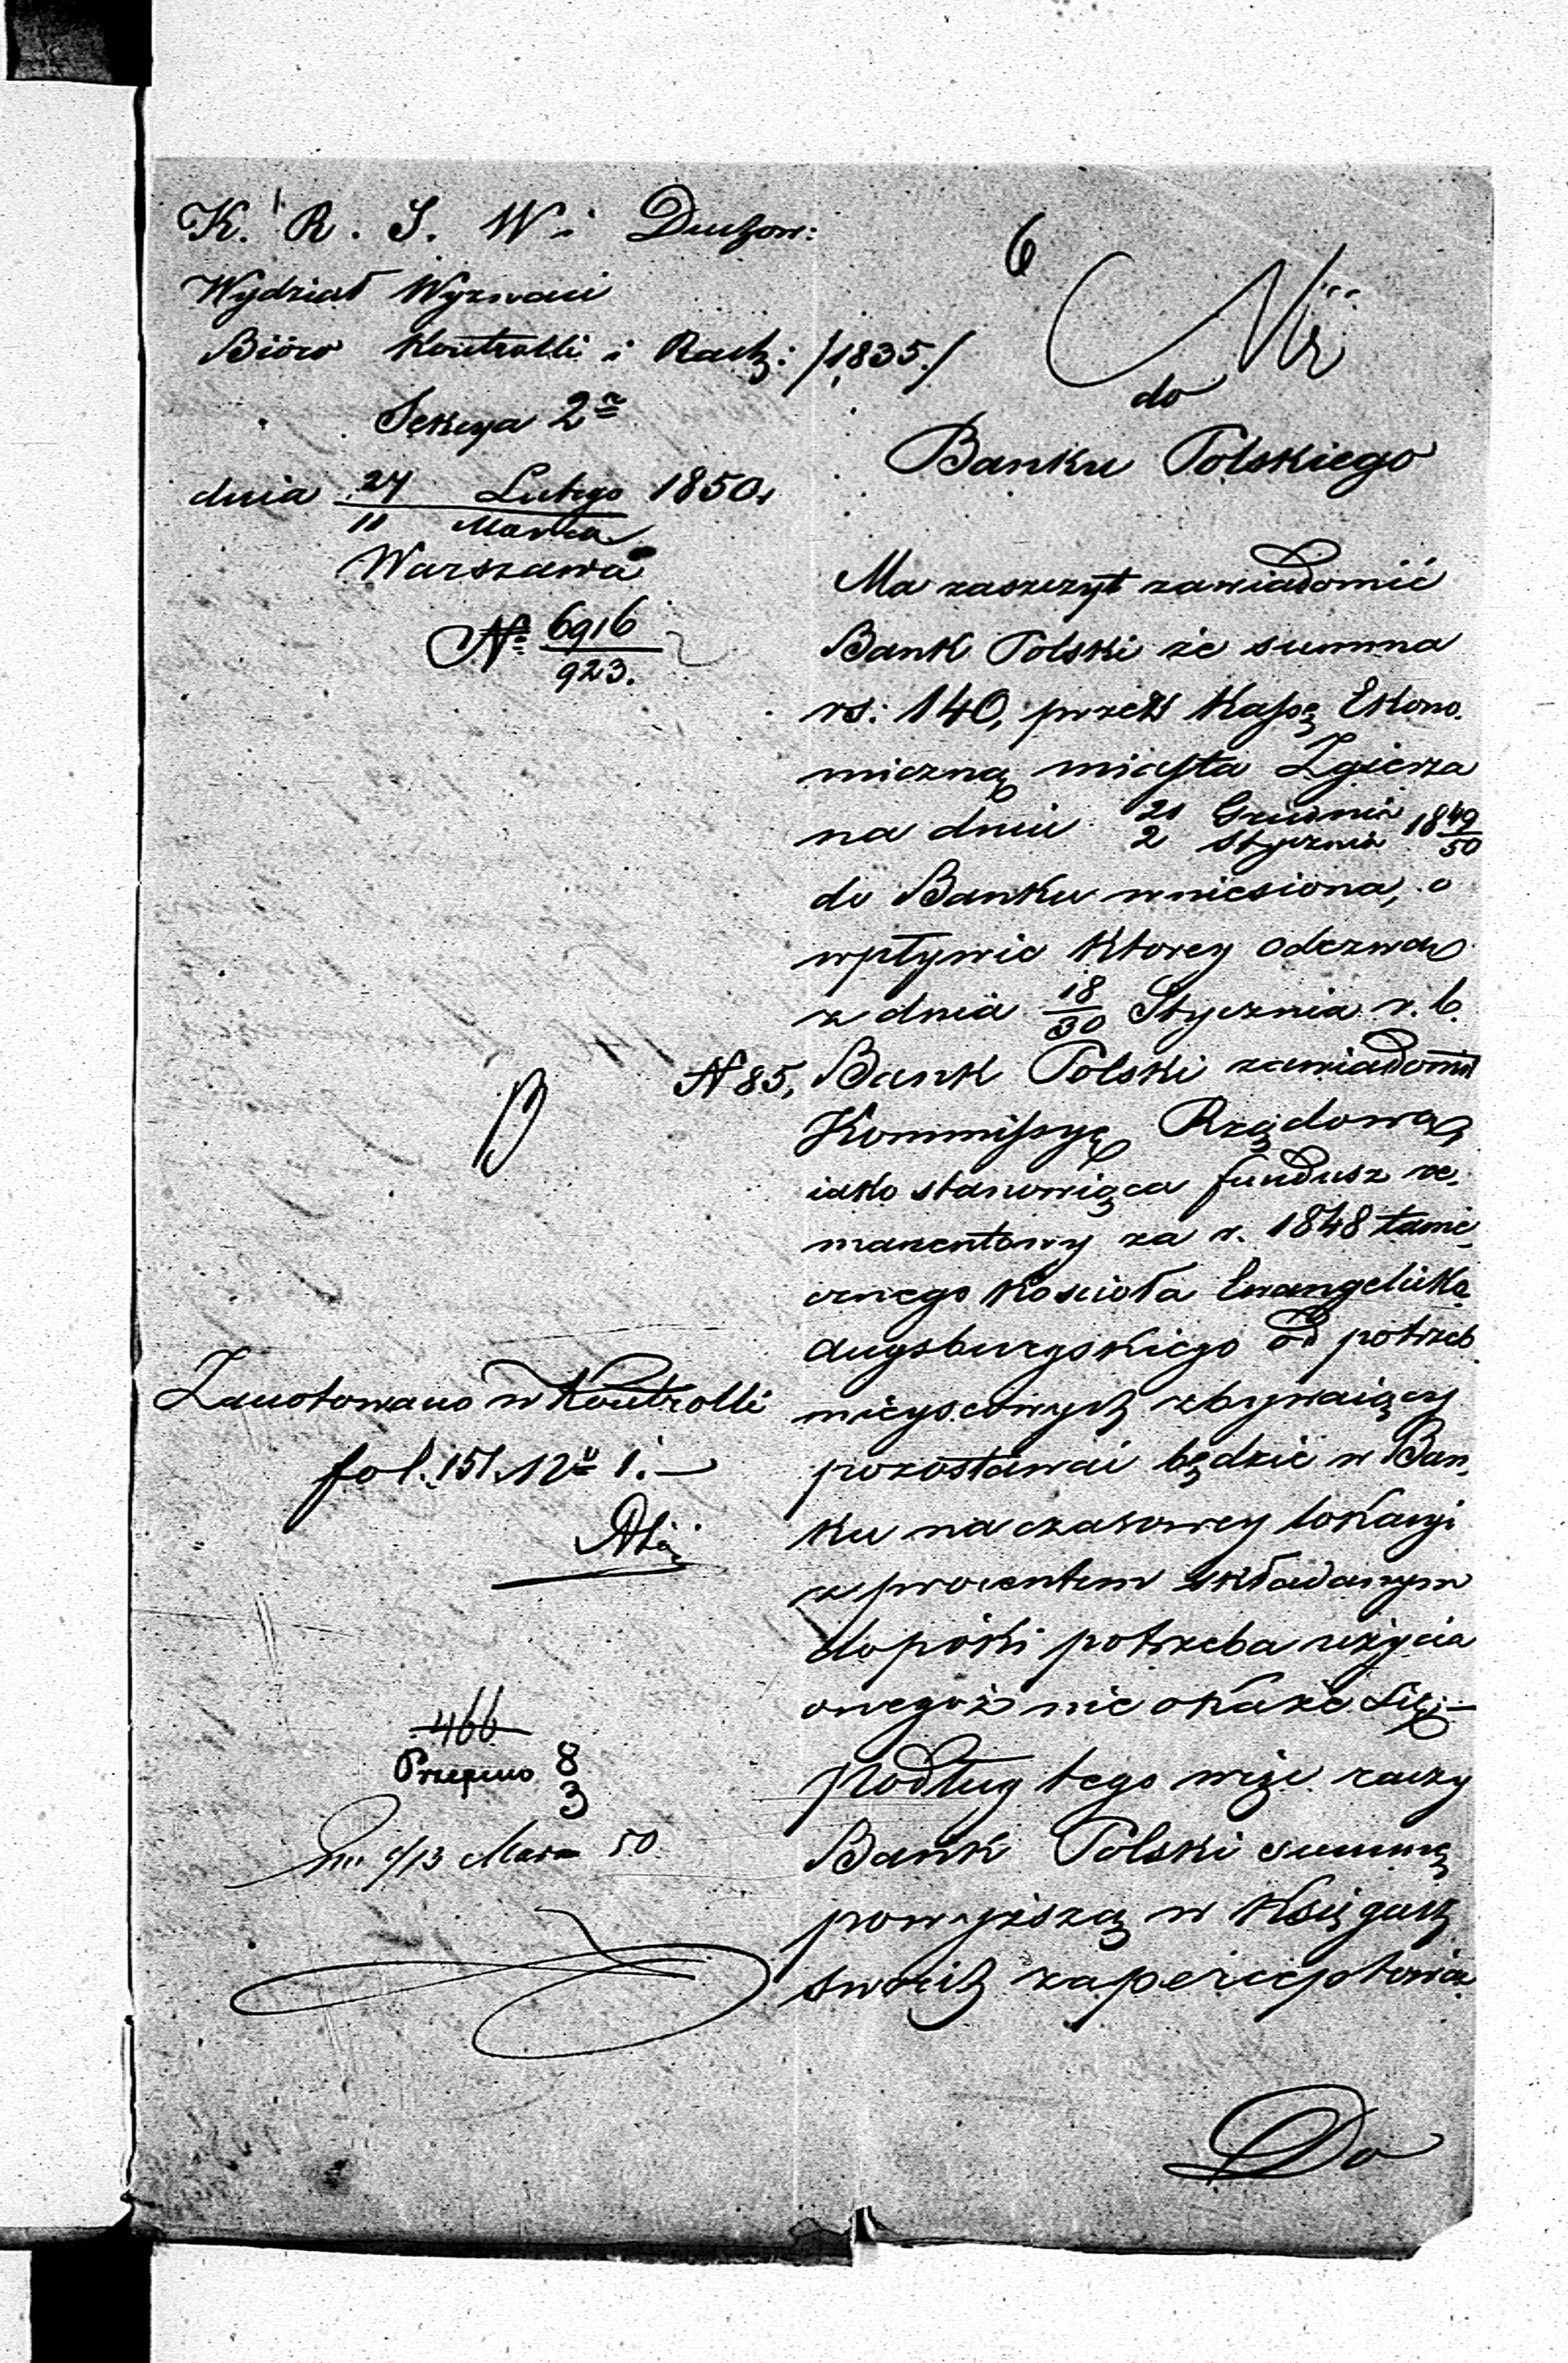 K. R. S. W. i Duchow:
Wydział Wyznań
Biuro Kontrolli i Rach: /1835./
Sekcya 2a
dnia 27 Lutego 1850.
11 Marca
Warszawa
No 6916
923.
6
do
Banku Polskiego
Ma zaszczyt zawiadomić
Bank Polski że summa
rs: 140, przez Kassę Ekono-
miczną miasta Zgierza
na dniu 21 Grudnia 1849
2 Stycznia 50
do Banku wniesiona, o
wpływie którey odezwą
z dnia 18/30 Stycznia r. b.
N 85, Bank Polski zawiadomił
Kommissyę Rządową
iako stanowiąca fundusz re-
manentowy za r. 1848 tame-
cznego Kościoła Ewangelicko
Augsburgskiego od potrzeb
mieyscowych zbywaiący
pozostawać będzie w Ban-
ku na czasowey lokacyi
z procentem składanym
dopóki potrzeba użycia
onegoż nie okaże się; —
podług tego więc raczy
Bank Polski summę
powyższą w Księgach
swoich zapercepto­wać
Zanotowano w Kontrolli
fol. 151. No 1. —
466
8
3
1/13 Marca 50
Do